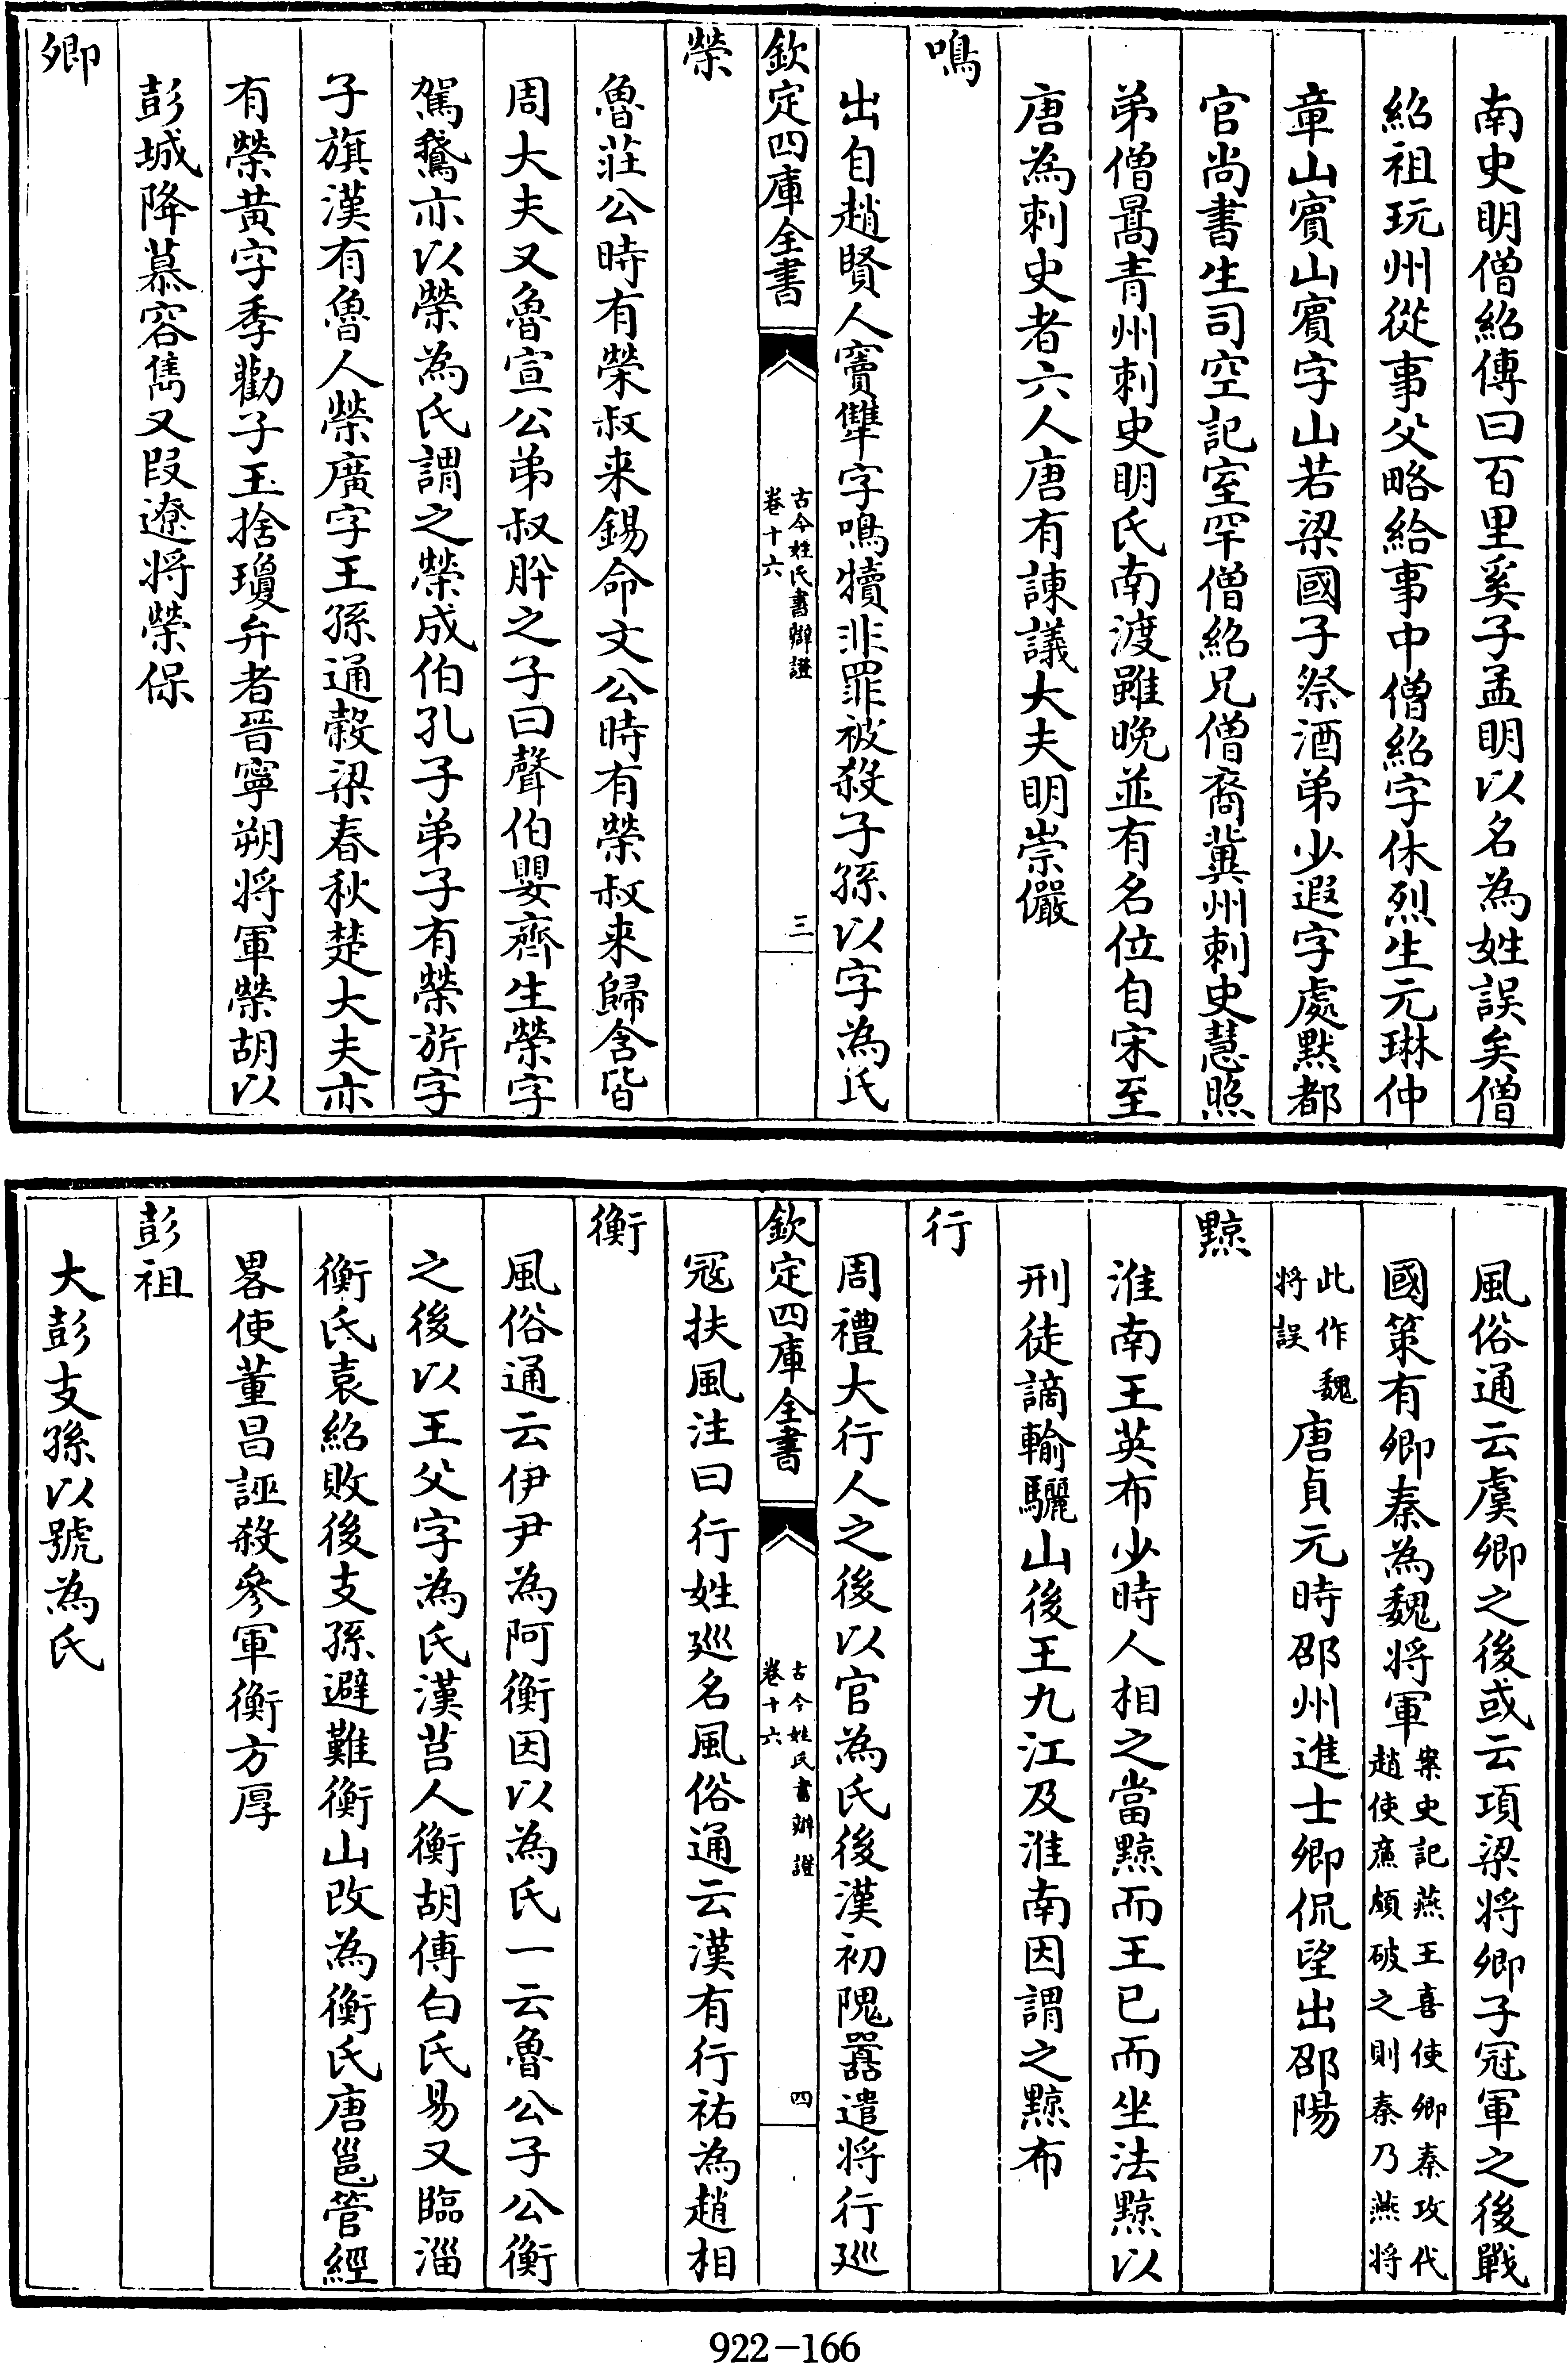 南史明僧紹傳曰百里奚子孟明以名為姓誤矣僧
紹祖玩州從事父略給事中僧紹字休烈生元琳仲
章山賓山賓字山若梁國子祭酒弟少遐字處黙都
官尚書生司空記室罕僧紹兄僧裔冀州刺史慧照
弟僧暠青州刺史明氏南渡雖晚並有名位自宋至
唐為刺史者六人唐有諫議大夫明崇儼
鳴
出自趙賢人竇犨字鳴犢非罪被殺子孫以字為氏
欽定四庫全書
古今姓氏書辯證
卷十六
三
榮
魯莊公時有榮叔来錫命文公時有榮叔来歸含皆
周大夫又魯宣公弟叔肸之子曰聲伯嬰齊生榮字
駕鵞亦以榮為氏謂之榮成伯孔子弟子有榮旂字
子旗漢有魯人榮廣字王孫通穀梁春秋楚大夫亦
有榮黄字季勸子玉捨瓊弁者晉寧朔將軍榮胡以
彭城降慕容雋又段遼將榮保
卿
風俗通云虞卿之後或云項梁將卿子冠軍之後戰
國策有卿秦為魏將軍
案史記燕王喜使卿秦攻代
趙使亷頗破之則秦乃燕將
此作魏
將誤
唐貞元時邵州進士卿侃望出邵陽
黥
淮南王英布少時人相之當黥而王已而坐法黥以
刑徒謫輸驪山後王九江及淮南因謂之黥布
行
周禮大行人之後以官為氏後漢初隗囂遣將行廵
欽定四庫全書
古今姓氏書辯證
卷十六
四
冦扶風注曰行姓廵名風俗通云漢有行祐為趙相
衡
風俗通云伊尹為阿衡因以為氏一云魯公子公衡
之後以王父字為氏漢莒人衡胡傳白氏易又臨淄
衡氏袁紹敗後支孫避難衡山改為衡氏唐邕管經
畧使董昌誣殺參軍衡方厚
彭祖
大彭支孫以號為氏
922-166